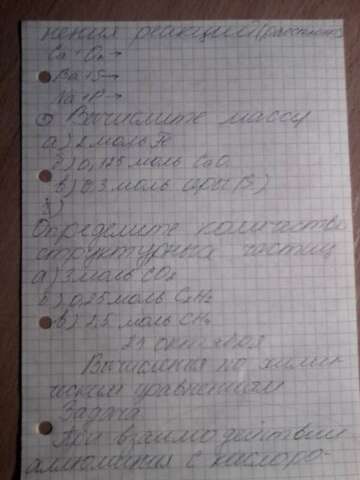 нения реакций (расставьте
Ca + O₂ →
Ba + S →
Na + P →
Вычислите массу
а) 2 моль Fe
б) 0,125 моль CaO
в) 0,3 моль
Определите количество
структурных частиц
а) 3 моль CO₂
б) 0,25 моль C₂H₂
в) 2,5 моль CH₄
25 октября
Вычисления по хими-
ческим уравнениям
Задача
При взаимодействии
алюминия с кислоро-